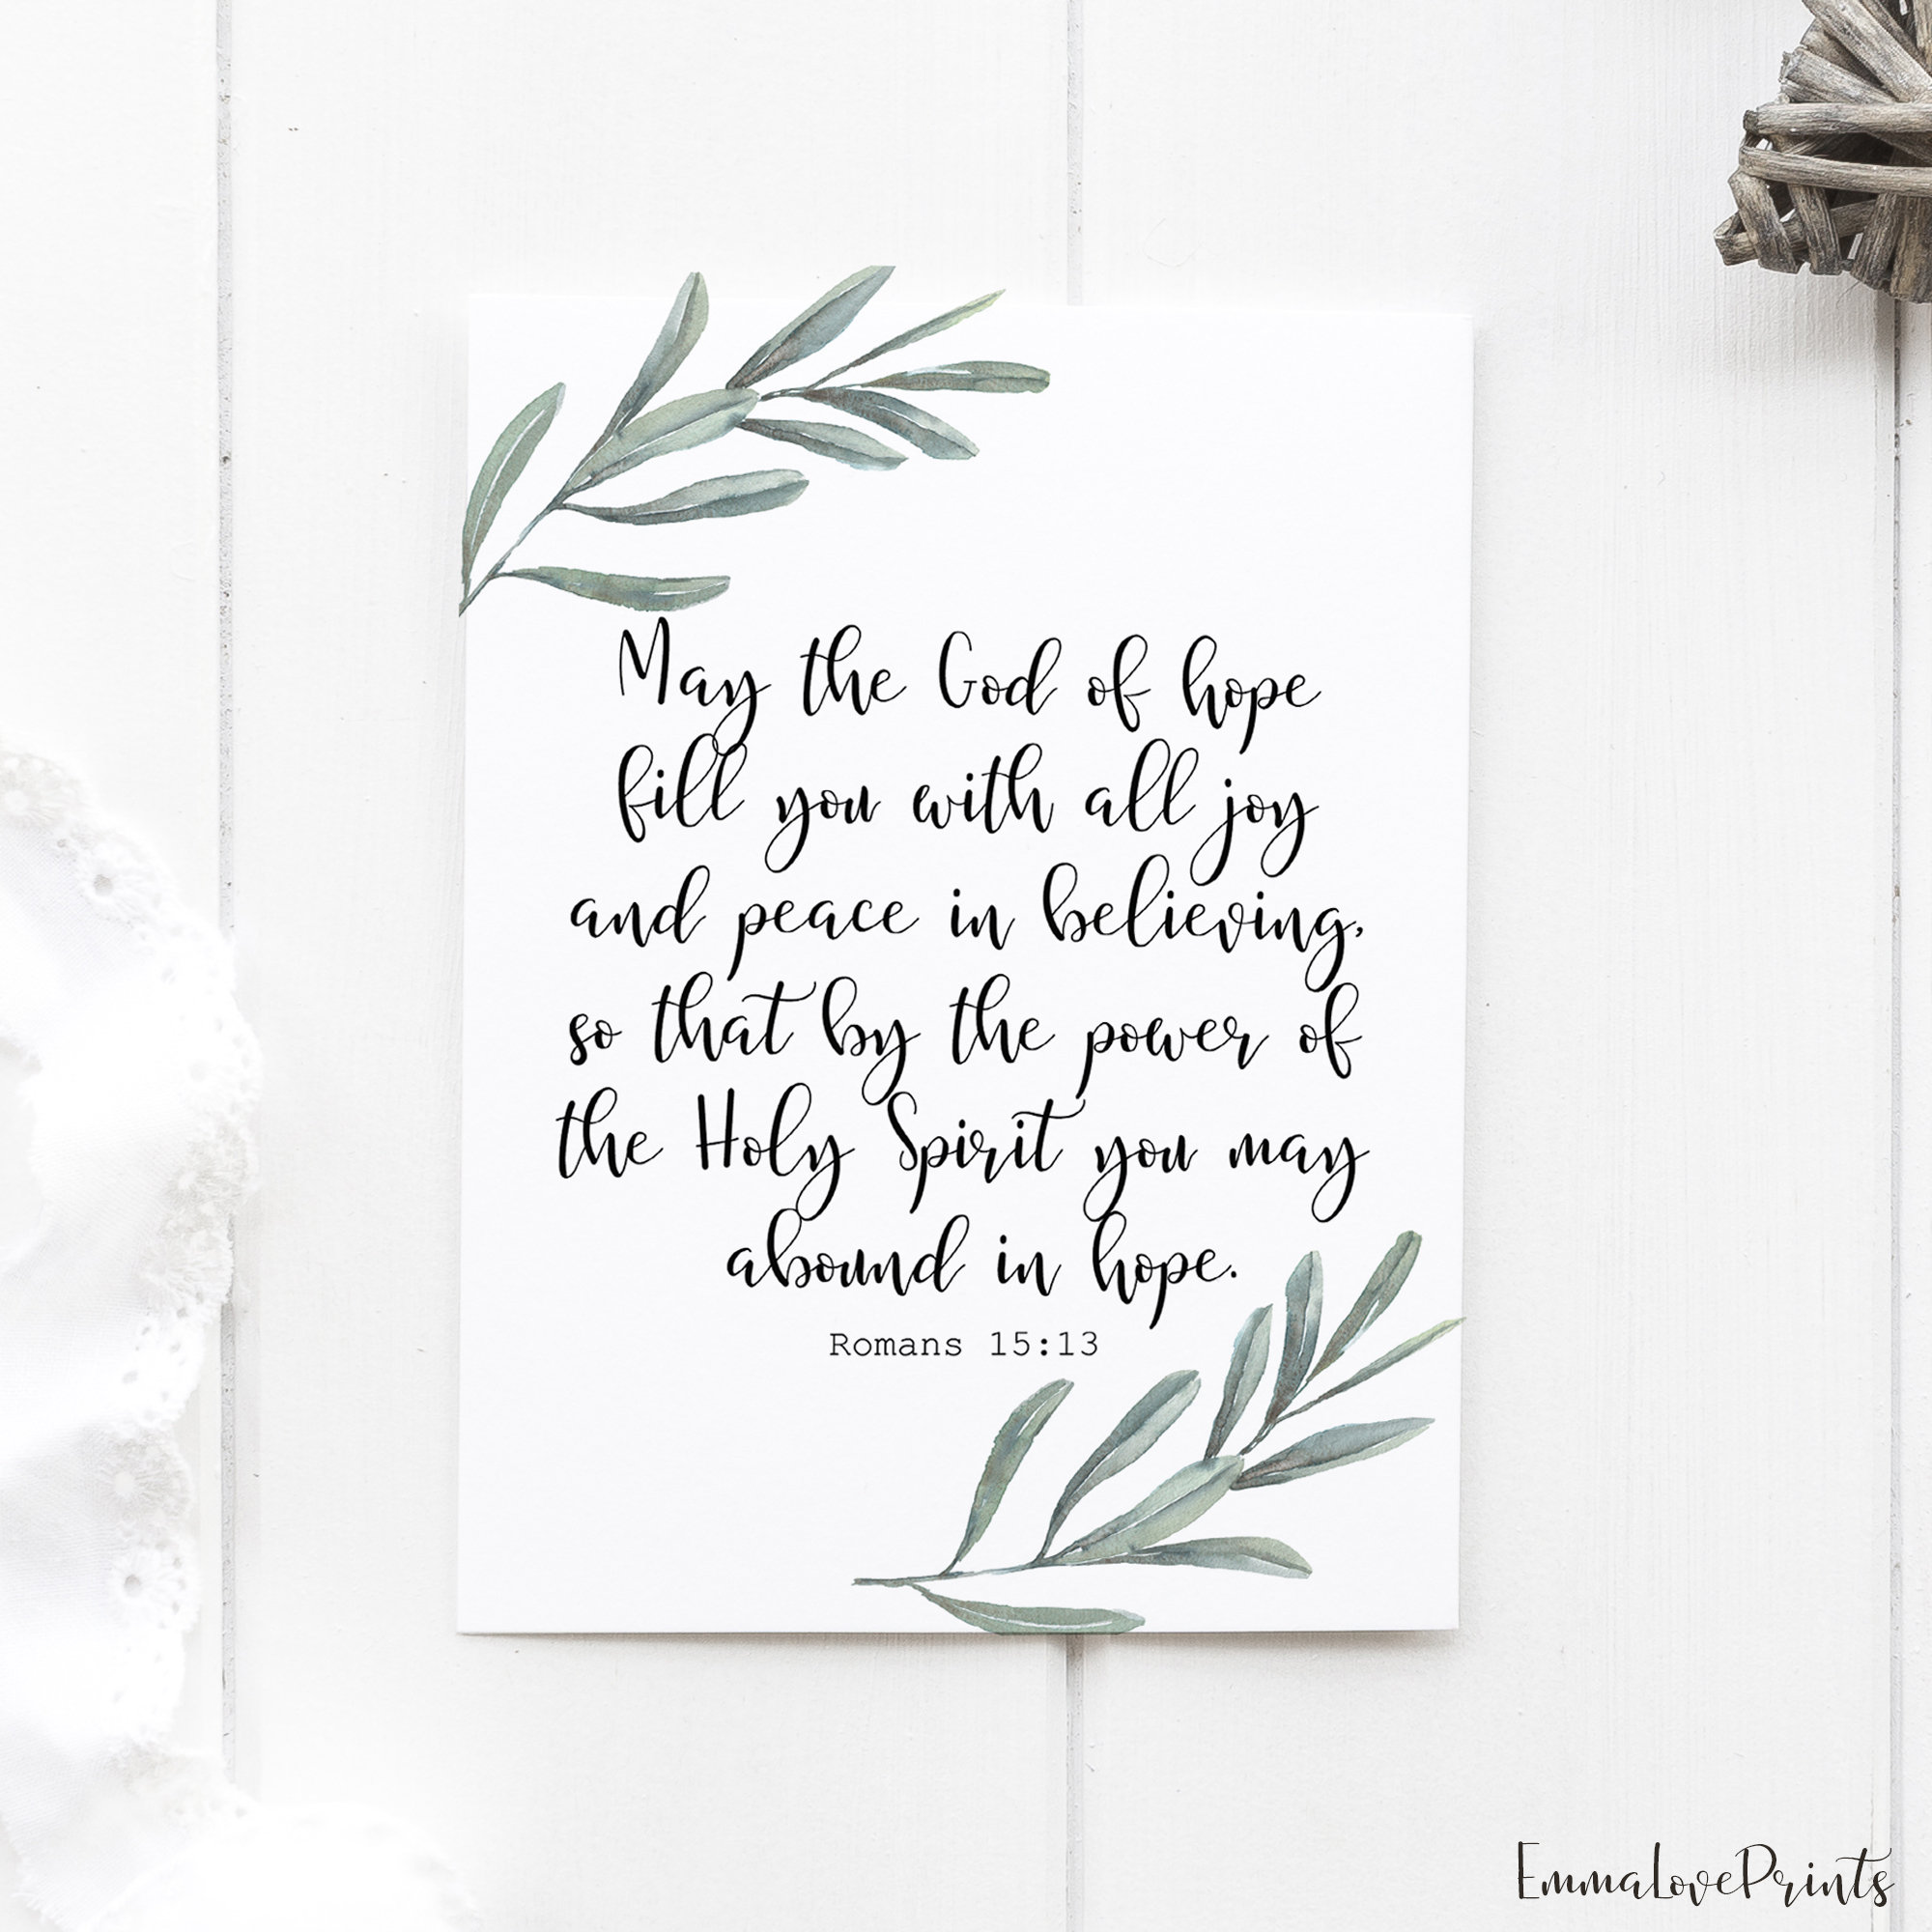 May the God of hope
fill you with all joy
and peace in believing,
so that by the power of
the Holy Spirit you may
abound in hope.
Romans 15:13
EmmaLovePrints